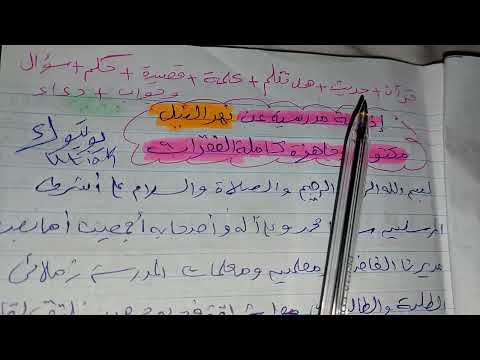 قرآن + حديث + هل تعلم + كلمة + قصيدة + حكم + سؤال
وجواب + دعاء
إذاعة مدرسية عن نهر النيل
مكتوبة وجاهزة كاملة الفقرات
يوتيوك
بسم الله الرحيم والصلاة والسلام على أشرف
المرسلين محمد وعلى آله وأصحابه أجمعين أما بعد
مديرنا الفاضل معلمين ومعلمات المدرسة زملائي
الطلبة